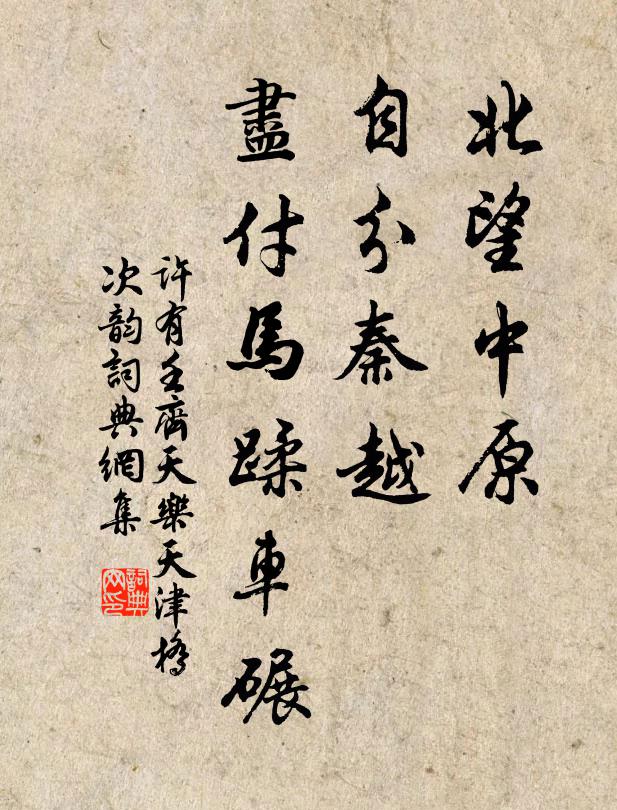 北望中原
自分秦越
盡付馬蹂車碾
許有壬齊天樂天津橋
次韵詞典網集
詞典
网印